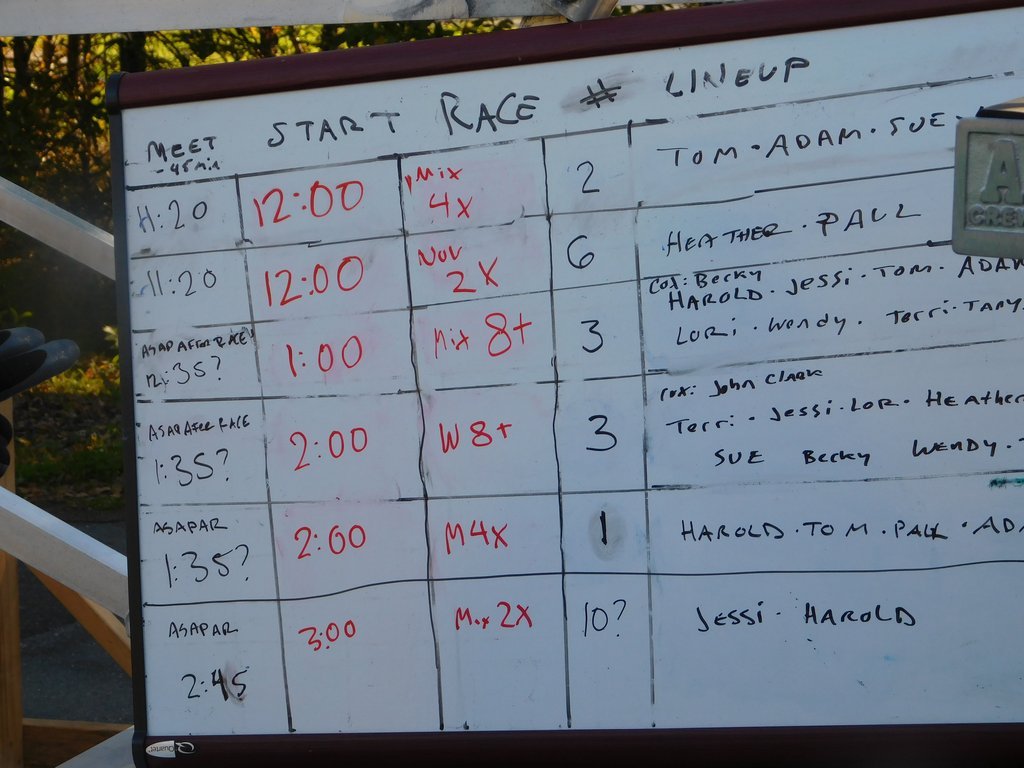 MEET START RACE # LINEUP
-45min
11:20 12:00 Mix 4x 2 TOM · ADAM · SUE ·
11:20 12:00 Nov 2X 6 HEATHER · PAUL
ASAP AFTER RACE! 12:35? 1:00 Mix 8+ 3 COX: Becky
HAROLD · Jessi · TOM · ADAM
LORi · Wendy · Terri · TARY
ASAP AFTER RACE 1:35? 2:00 W8+ 3 COX: John CLARK
Terri · Jessi · LOR · HEATHER
SUE Becky WENDY ·
ASAPAR 1:35? 2:00 M4X 1 HAROLD · TOM · PAUL · AD
ASAPAR 2:45 3:00 Mix 2X 10? Jessi · HAROLD
A
CRE
Quartet